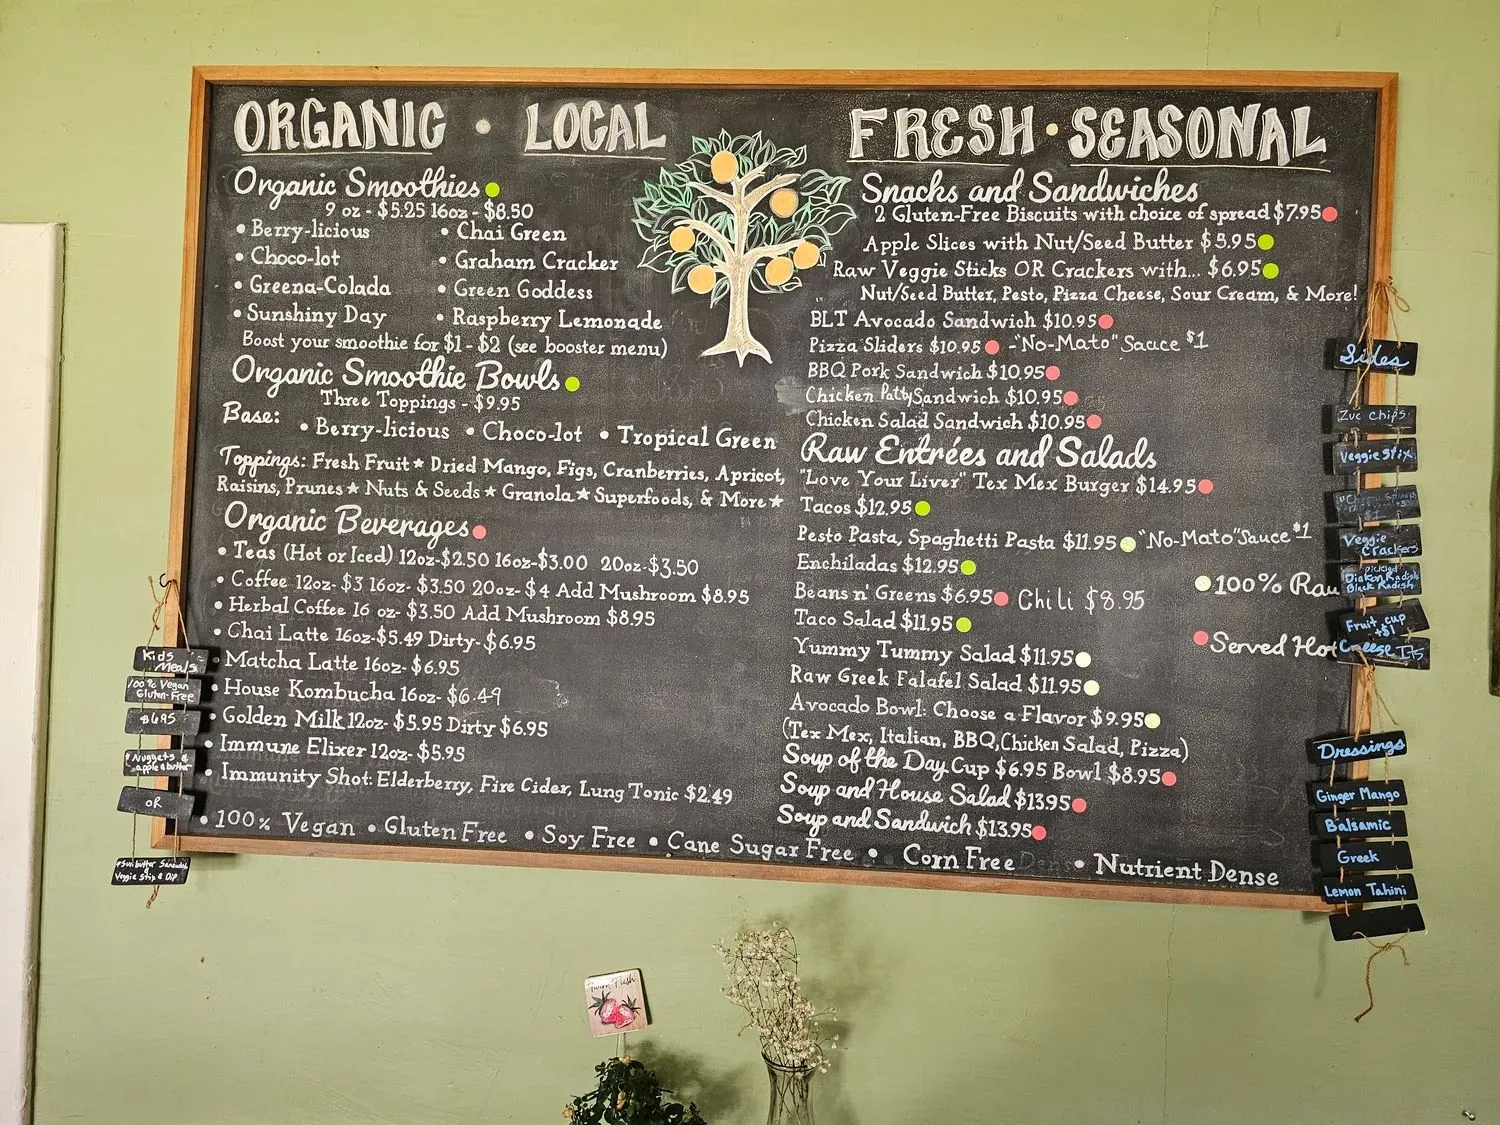 ORGANIC • LOCAL
Organic Smoothies
9 oz - $5.25 16oz - $8.50
• Berry-licious
• Chai Green
• Choco-lot
• Graham Cracker
• Greena-Colada
• Green Goddess
• Sunshiny Day
• Raspberry Lemonade
Boost your smoothie for $1 - $2 (see booster menu)
Organic Smoothie Bowls
Three Toppings - $9.95
Base: • Berry-licious • Choco-lot • Tropical Green
Toppings: Fresh Fruit ★ Dried Mango, Figs, Cranberries, Apricot,
Raisins, Prunes ★ Nuts & Seeds ★ Granola ★ Superfoods, & More ★
Organic Beverages
• Teas (Hot or Iced) 12oz-$2.50 16oz-$3.00 20oz-$3.50
• Coffee 12oz- $3 16oz- $3.50 20oz- $4 Add Mushroom $8.95
• Herbal Coffee 16 oz- $3.50 Add Mushroom $8.95
• Chai Latte 16oz-$5.49 Dirty-$6.95
• Matcha Latte 16oz- $6.95
• House Kombucha 16oz- $6.49
• Golden Milk 12oz- $5.95 Dirty $6.95
• Immune Elixer 12oz- $5.95
• Immunity Shot: Elderberry, Fire Cider, Lung Tonic $2.49
FRESH • SEASONAL
Snacks and Sandwiches
2 Gluten-Free Biscuits with choice of spread $7.95
Apple Slices with Nut/Seed Butter $5.95
Raw Veggie Sticks OR Crackers with... $6.95
Nut/Seed Butter, Pesto, Pizza Cheese, Sour Cream, & More!
BLT Avocado Sandwich $10.95
Pizza Sliders $10.95 -"No-Mato" Sauce $1
BBQ Pork Sandwich $10.95
Chicken Patty Sandwich $10.95
Chicken Salad Sandwich $10.95
Raw Entrées and Salads
"Love Your Liver" Tex Mex Burger $14.95
Tacos $12.95
Pesto Pasta, Spaghetti Pasta $11.95 "No-Mato" Sauce $1
Enchiladas $12.95
Beans n' Greens $6.95 Chili $8.95
Taco Salad $11.95
Yummy Tummy Salad $11.95
Raw Greek Falafel Salad $11.95
Avocado Bowl: Choose a Flavor $9.95
(Tex Mex, Italian, BBQ, Chicken Salad, Pizza)
Soup of the Day Cup $6.95 Bowl $8.95
Soup and House Salad $13.95
Soup and Sandwich $13.95
100% Raw
Served Hot
• 100% Vegan • Gluten Free • Soy Free • Cane Sugar Free • Corn Free • Nutrient Dense
Kids Meals
100% Vegan
Gluten-Free
$6.95
Nuggets &
apple & butter
OR
Sunbutter Sandwich
Veggie Stix & Dip
Sides
Zuc Chips
Veggie Stix
Veggie
Crackers
pickled
Diakon Radish
Black Radish
Fruit cup
+$1
Cheese Its
Dressings
Ginger Mango
Balsamic
Greek
Lemon Tahini